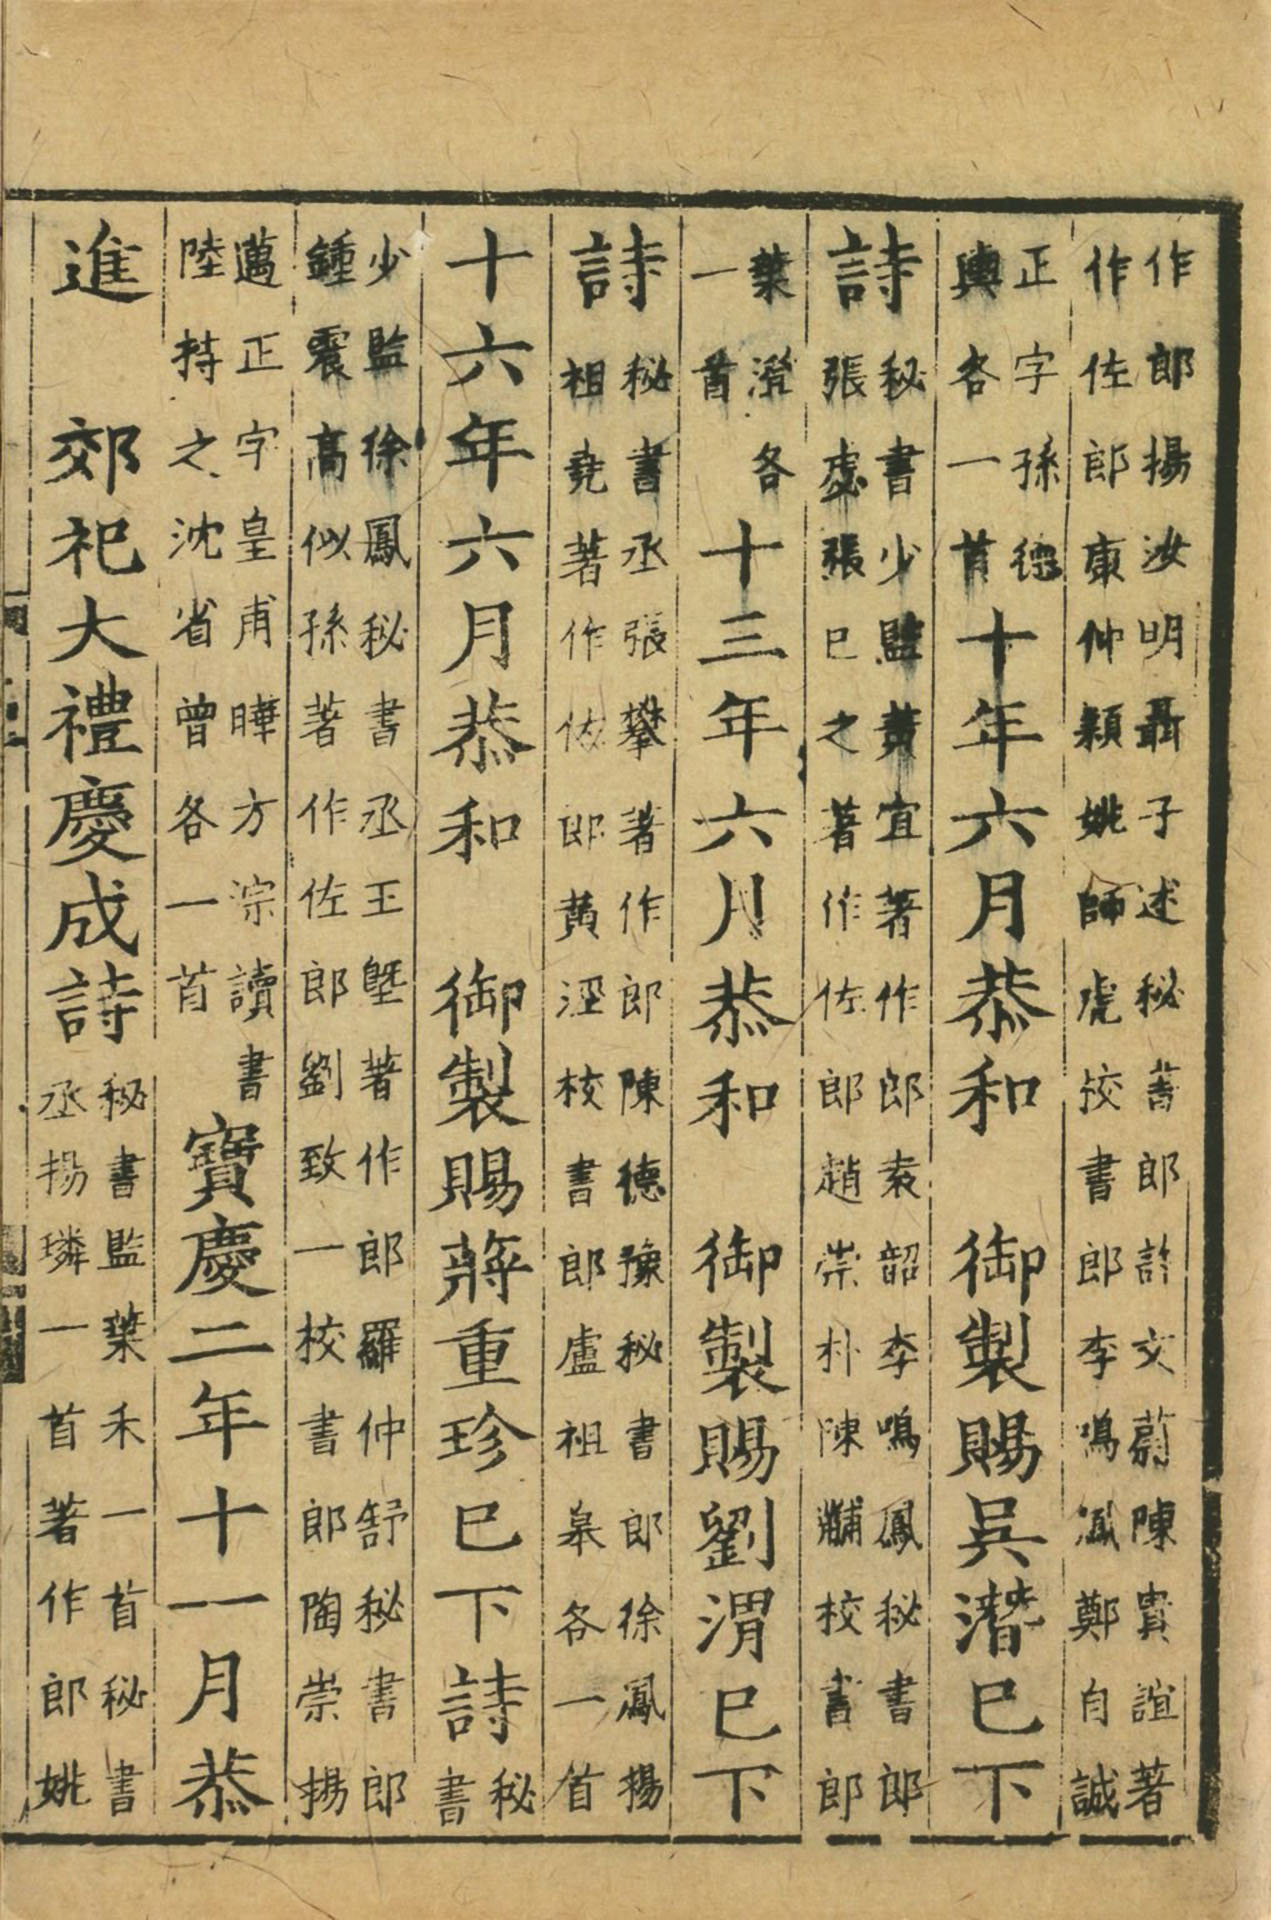 作郎揚汝明聶子述秘書郎許文蔚陳貴誼著
作佐郎東仲穎姚師虎校書郎李鳴鳳鄭自誠
正字孫德
輿各一首
十年六月恭和　御製賜吳潛巳下
詩
秘書少監黃宜著作郎袁韶李鳴鳳秘書郎
張虙張巳之著作佐郎趙崇朴陳黼校書郎
葉澄各
一首
十三年六月恭和　御製賜劉渭巳下
詩
秘書丞張攀著作郎陳德豫秘書郎徐鳳揚
祖堯著作佐郎黃涇校書郎盧祖皋各一首
十六年六月恭和　御製賜蔣重珍巳下詩
秘
書
少監徐鳳秘書丞王塈著作郎羅仲舒秘書郎
鍾震高似孫著作佐郎劉致一校書郎陶崇揚
邁正字皇甫曄方淙讀書
陸持之沈省曾各一首
寶慶二年十一月恭
進　郊祀大禮慶成詩
秘書監葉禾一首秘書
丞揚璘一首著作郎姚